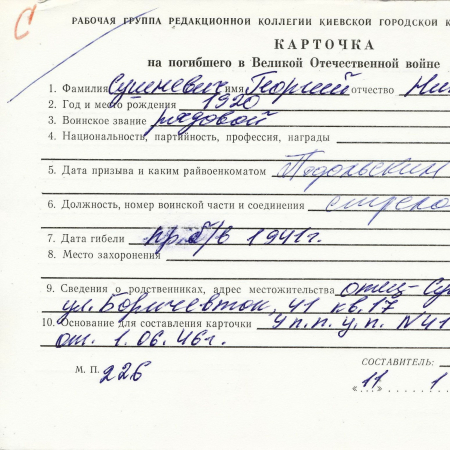 С
РАБОЧАЯ ГРУППА РЕДАКЦИОННОЙ КОЛЛЕГИИ КИЕВСКОЙ ГОРОДСКОЙ К
КАРТОЧКА
на погибшего в Великой Отечественной войне
1. Фамилия Сушневич имя Георгий отчество Ни
2. Год и место рождения 1920
3. Воинское звание рядовой
4. Национальность, партийность, профессия, награды
5. Дата призыва и каким райвоенкоматом Подольский
6. Должность, номер воинской части и соединения стрело
7. Дата гибели пр б/в 1941г.
8. Место захоронения
9. Сведения о родственниках, адрес местожительства отец - Су
ул. Боричевток, 41 кв. 17
10. Основание для составления карточки у п.п. у.п. N 41
от. 1.06.46г.
СОСТАВИТЕЛЬ:
М. П. 226
«11 1